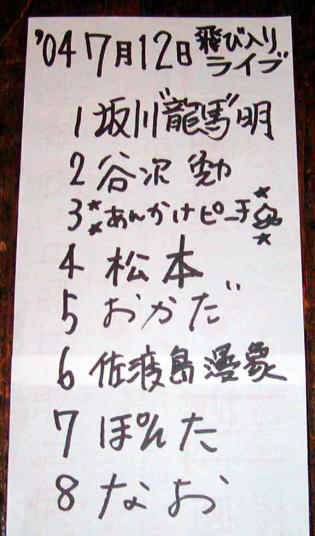 '04 7月12日 飛び入りライブ
1 坂川"龍馬"明
2 谷沢 勉
3 あんかけピー子
4 松本
5 おかだ
6 佐渡島漫象
7 ぽんた
8 なお